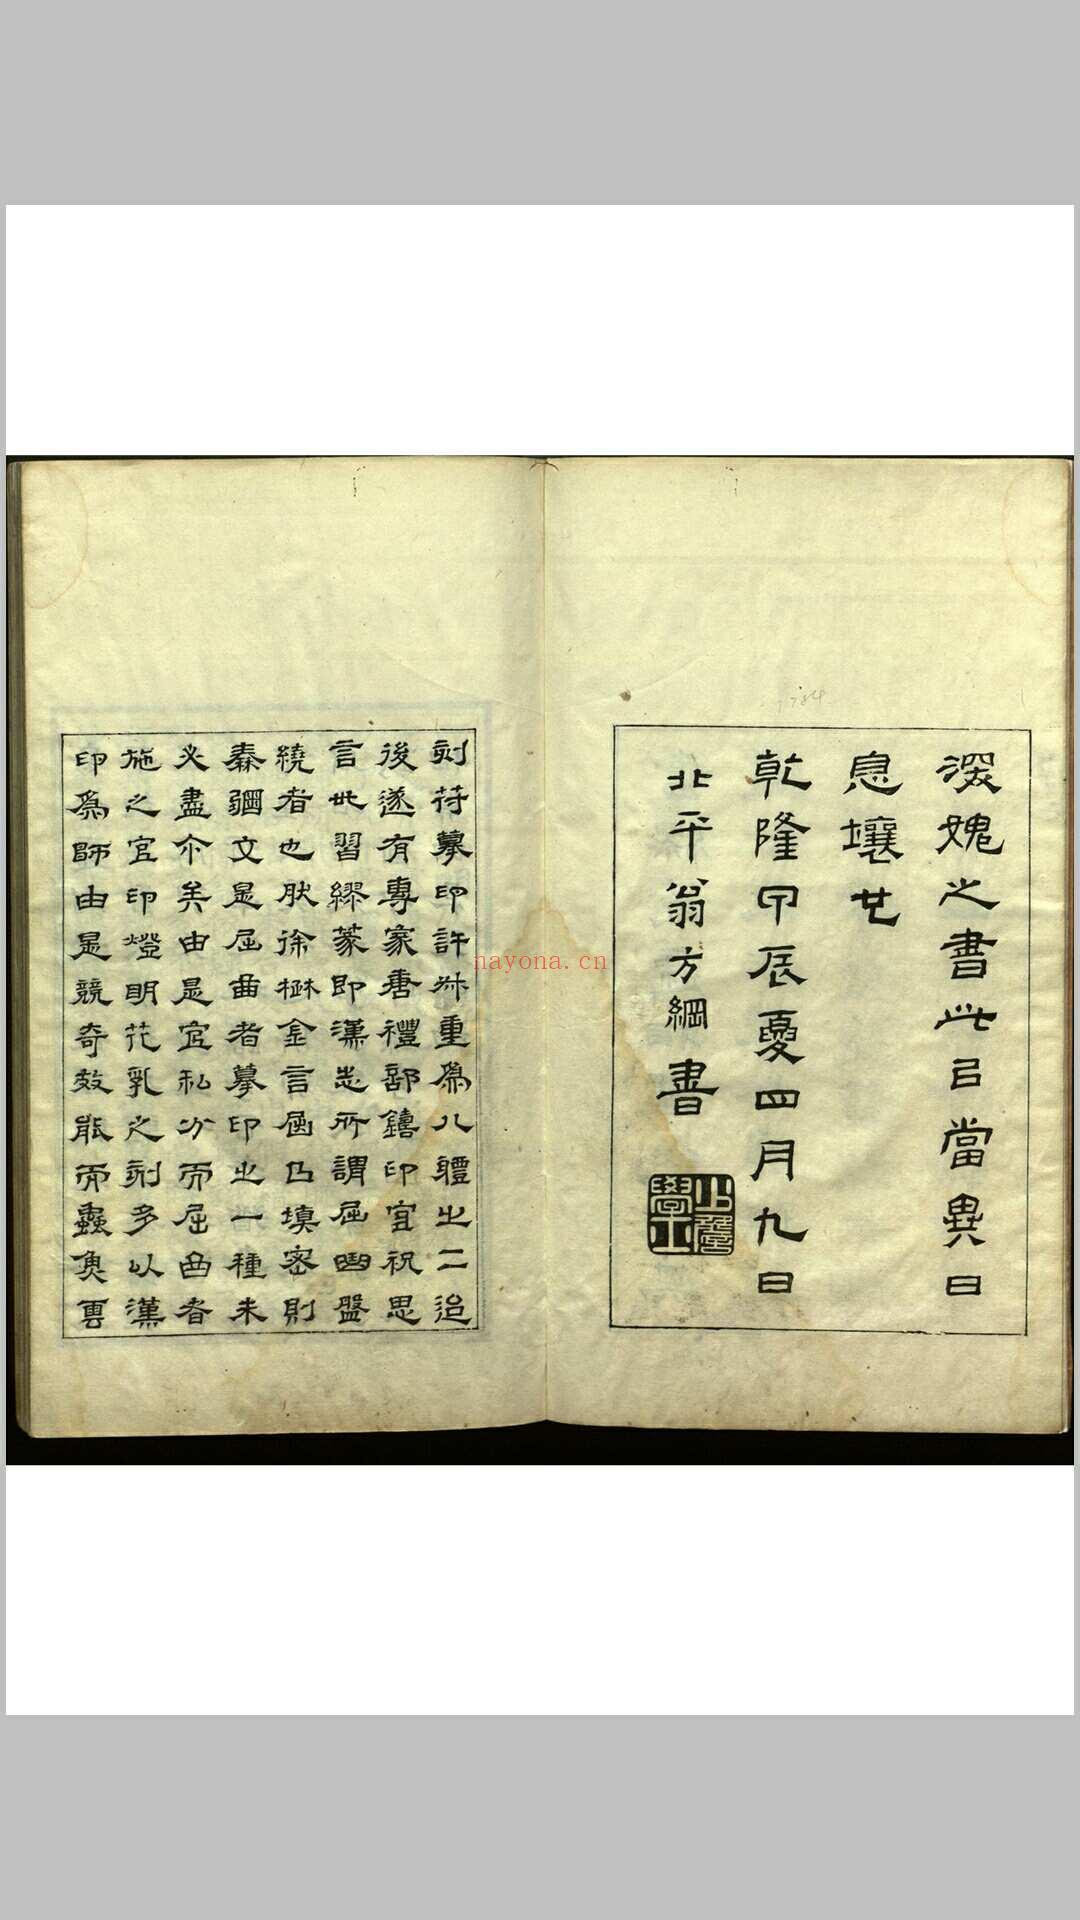 深愧之書此㠯當異日
息壤廿
乾隆甲辰夏四月九日
北平翁方綱書
刻符摹印許叔重為八體之二迨
後遂有專家唐禮部鑄印官祝思
言世習繆篆即漢志所謂屈曲盤
繞者也狀徐楙金言屈凸填密則
秦璽文是屈曲者摹印之一種未
必盡尒矣由是官私分而屈曲者
施之官印燈明花乳之刻多以漢
印為師由是競奇效能而蟲魚雲
nayona.cn